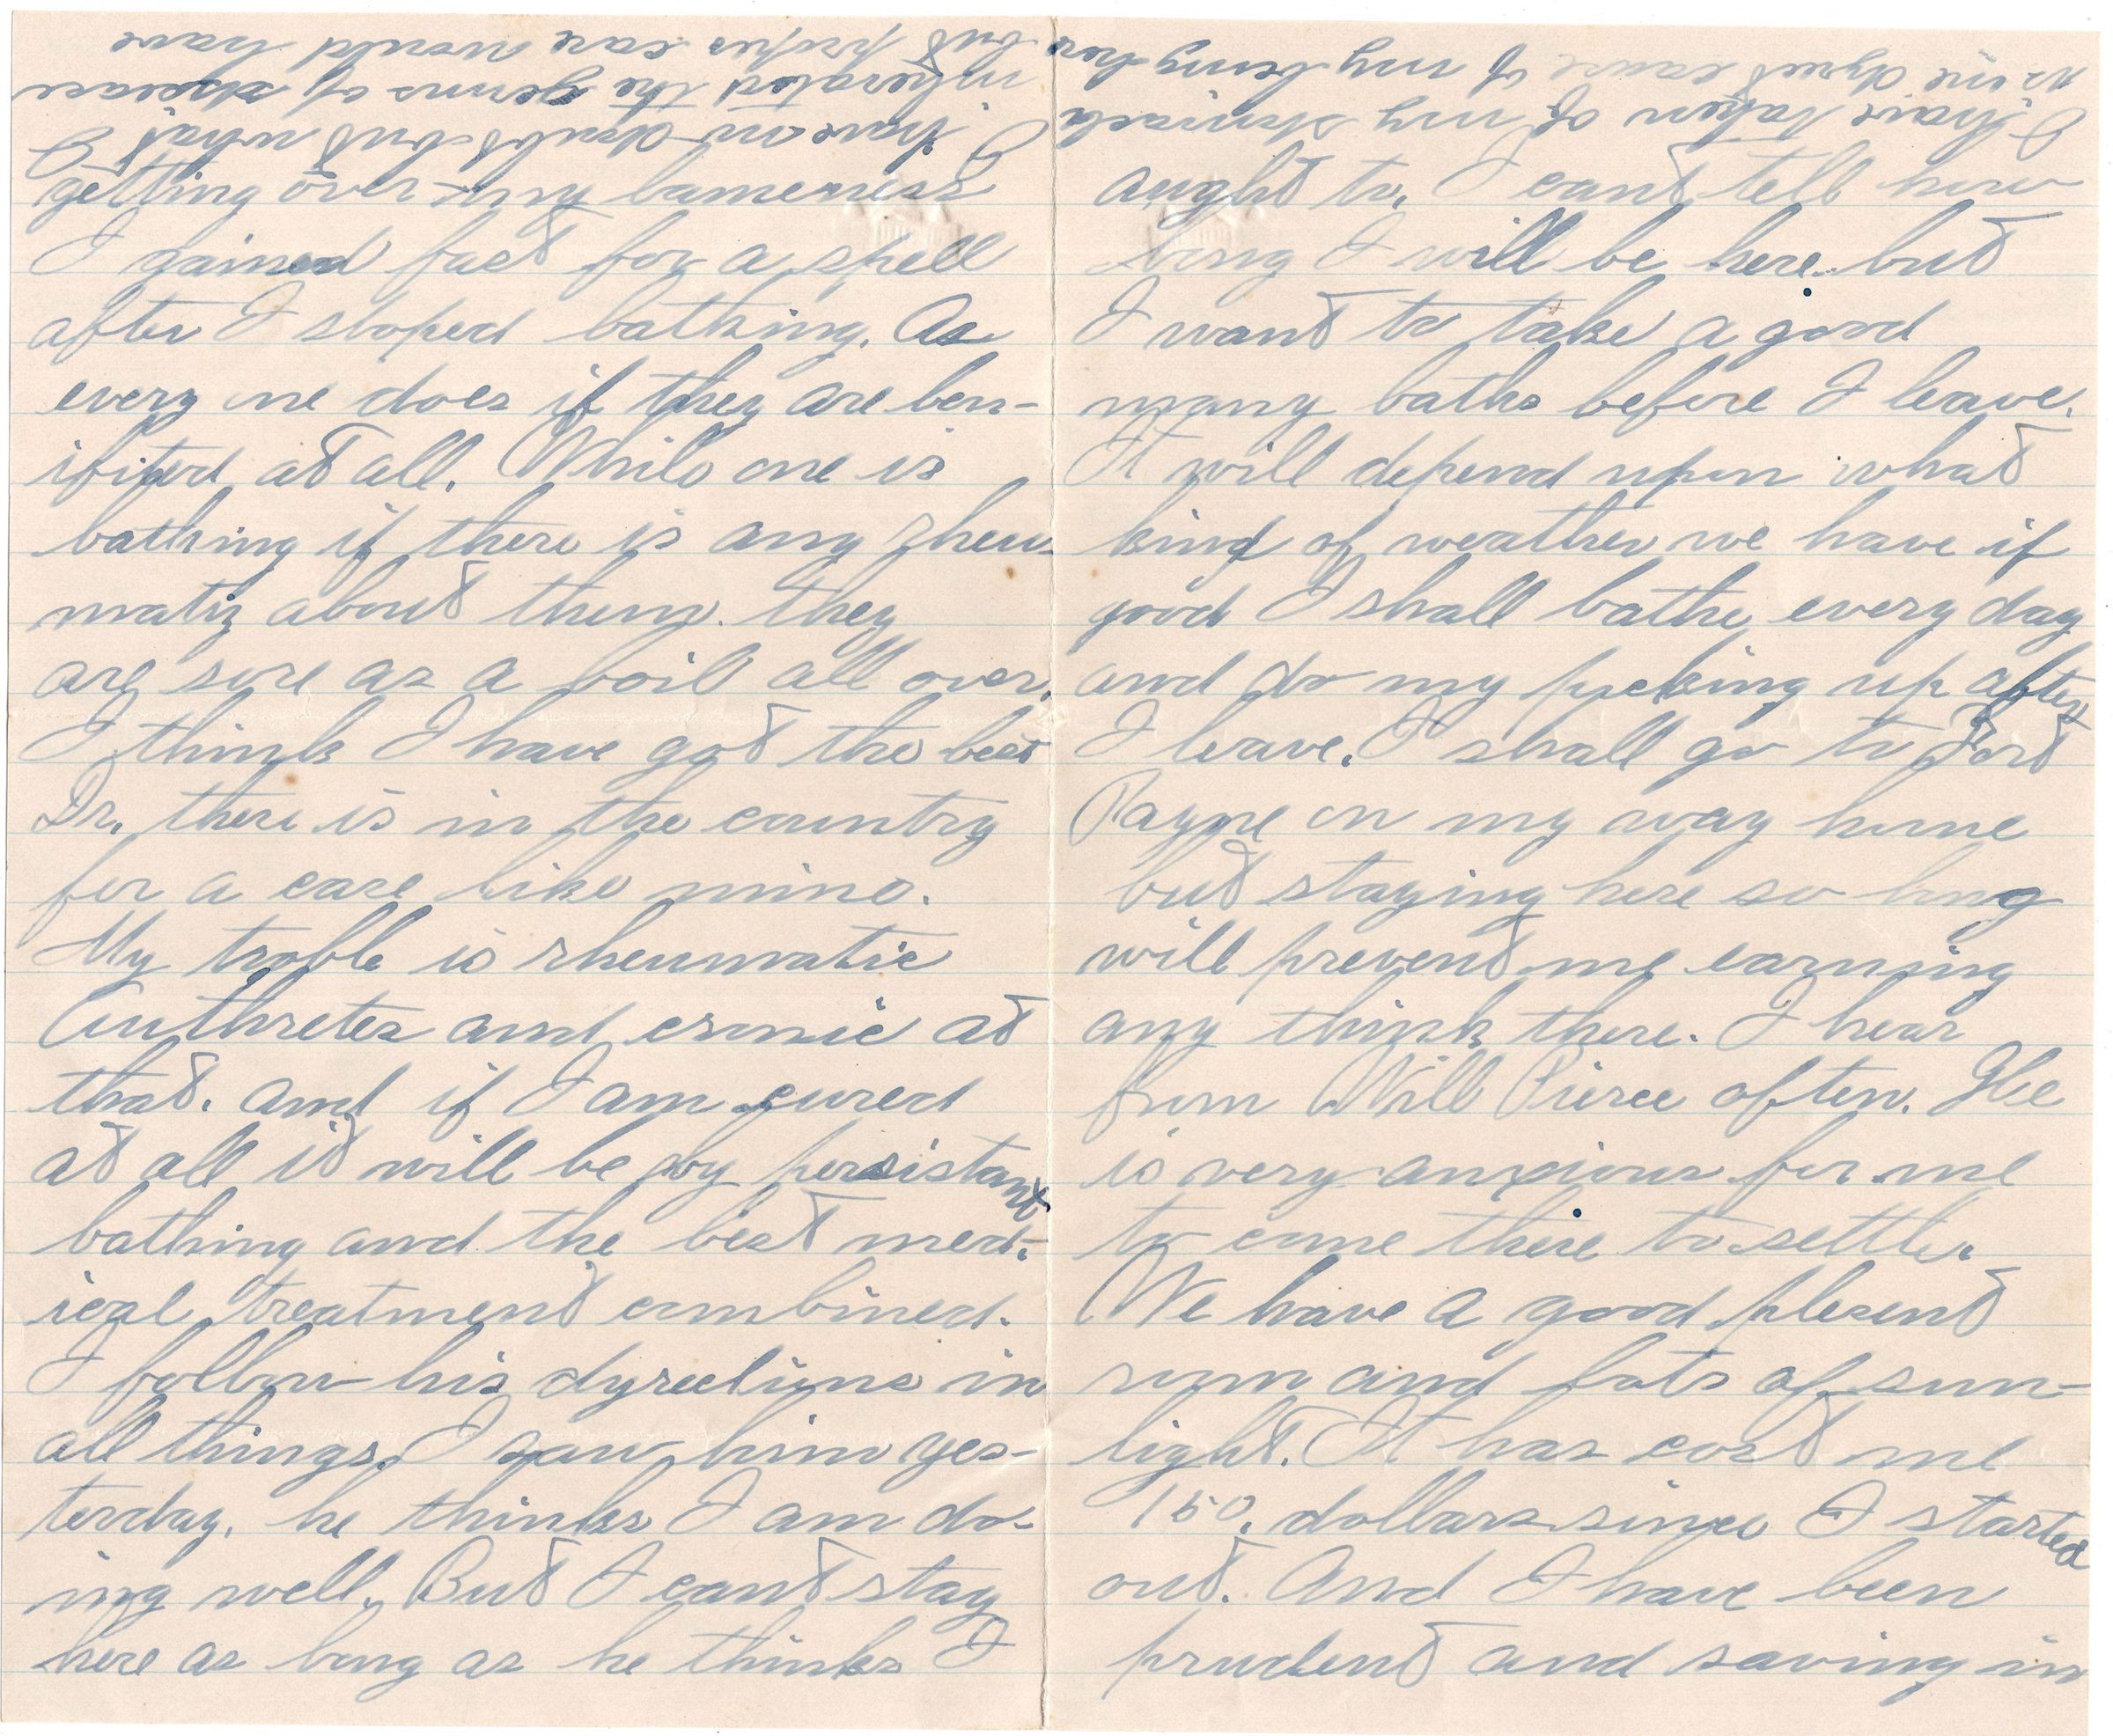 getting over my lameness
I gained fast for a spell
after I stoped bathing. As
every one does if they are ben-
ifited at all. While one is
bathing if there is any rheu-
matiz about them. they
are sore as a boil all over.
I think I have got the best
Dr. there is in the country
for a case like mine.
My troble is rheumatic
Authretes and cronic at
that. And if I am cured
at all it will be by persistant
bathing and the best med-
ical treatment combined.
I follow his dyrections in
all things. I saw him yes-
terday. he thinks I am do-
ing well. But I cant stay
here as long as he thinks I
aught to. I cant tell how
long I will be here but
I want to take a good
many baths before I leave.
It will depend upon what
kind of weather we have if
good I shall bathe every day
and do my picking up after
I leave. I shall go to Fort
Payne on my way home
but staying here so long
will prevent me earning
any think there. I hear
from Will Pierce often. He
is very anxious for me
to come there to settle.
We have a good plesent
room and lots of sun-
light. It has cost me
150. dollars since I started
out. And I have been
prudent and saving in
I have taken of my stomach
is one dyrect cause of my being her
I have no doubt but what I
inherated the germs of disease
but proper care would have